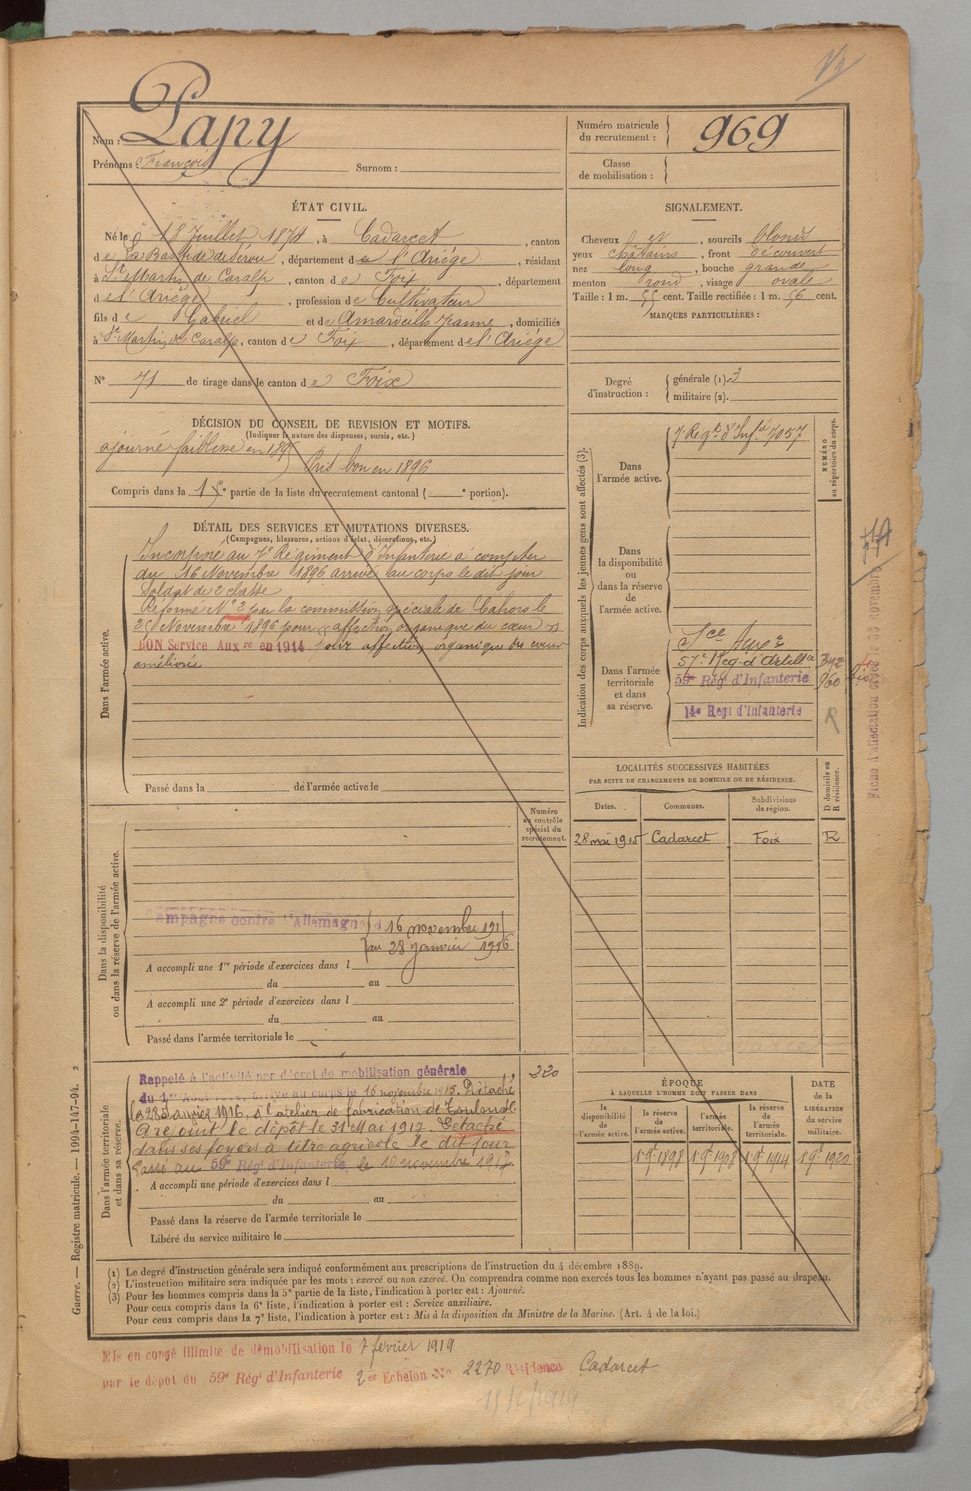 Nom : Papy
Prénoms : François Surnom :
Numéro matricule du recrutement : 969
Classe de mobilisation :
ÉTAT CIVIL.
Né le 18 Juillet 1874, à Cadarcet, canton
de La Bastide de Sérou, département de l'Ariège, résidant
à St Martin de Caralp, canton de Foix, département
de l'Ariège, profession de Cultivateur
fils de Gabriel et de Amardeilh Jeanne, domiciliés
à St Martin de Caralp, canton de Foix, département de l'Ariège
N° 71 de tirage dans le canton de Foix
SIGNALEMENT.
Cheveux et, sourcils blonds
yeux chatains, front découvert
nez long, bouche grande
menton rond, visage ovale
Taille : 1 m. 55 cent. Taille rectifiée : 1 m. 56 cent.
MARQUES PARTICULIÈRES :
Degré d'instruction : générale (1). 3
militaire (2).
DÉCISION DU CONSEIL DE REVISION ET MOTIFS.
(Indiquer la nature des dispenses, sursis, etc.)
ajourné faiblesse en 1895
Pris bon en 1896
Compris dans la 1e partie de la liste du recrutement cantonal ( e portion).
DÉTAIL DES SERVICES ET MUTATIONS DIVERSES.
(Campagnes, blessures, actions d'éclat, décorations, etc.)
Dans l'armée active.
Incorporé au 7e Régiment d'Infanterie à compter
du 16 Novembre 1896 arrivé au corps le dit jour
Soldat de 2e classe
Réformé N° 2 par la commission spéciale de Cahors le
25 Novembre 1896 pour affection organique du cœur
BON Service Auxre en 1914 pour affection organique du cœur
améliorée
Passé dans la de l'armée active le
Indication des corps auxquels les jeunes gens sont affectés (3).
NUMÉRO au répertoire du corps.
Dans l'armée active.
7 Régt d'Infie 7057
Dans la disponibilité ou dans la réserve de l'armée active.
Dans l'armée territoriale et dans sa réserve.
Sce Auxre
57e Rég. d'Artillie 342
59e Rég d'Infanterie 960 bis
14e Regt d'Infanterie R
Fiche d'affectation créée le 30 novembre
LOCALITÉS SUCCESSIVES HABITÉES
PAR SUITE DE CHANGEMENTS DE DOMICILE OU DE RÉSIDENCE.
Dates. Communes. Subdivisions de région. D domicile ou R résidence.
28 mai 1915 Cadarcet Foix R
Numéro au contrôle spécial du recrutement.
Dans la disponibilité ou dans la réserve de l'armée active.
Campagne contre l'Allemagne du 16 novembre 191
au 28 janvier 1916
A accompli une 1re période d'exercices dans l
du au
A accompli une 2e période d'exercices dans l
du au
Passé dans l'armée territoriale le
Dans l'armée territoriale et dans sa réserve.
Rappelé à l'activité par décret de mobilisation générale 220
du 1er Août arrivé au corps le 16 novembre 1915. Détaché
le 28 Janvier 1916, à l'atelier de fabrication de Toulouse
A rejoint le dépôt le 31 Mai 1917. Détaché
dans ses foyers à titre agricole le dit jour
Passé au 59e Rég d'Infanterie, le 10 novembre 1917
A accompli une période d'exercices dans l
du au
Passé dans la réserve de l'armée territoriale le
Libéré du service militaire le
ÉPOQUE
À LAQUELLE L'HOMME DOIT PASSER DANS
la disponibilité de l'armée active. la réserve de l'armée active. l'armée territoriale. la réserve de l'armée territoriale.
DATE DE LA LIBÉRATION DU SERVICE MILITAIRE.
1 9bre 1898 1 9bre 1908 1 9bre 1914 1 9bre 1920
(1) Le degré d'instruction générale sera indiqué conformément aux prescriptions de l'instruction du 4 décembre 1889.
(2) L'instruction militaire sera indiquée par les mots : exercé ou non exercé. On comprendra comme non exercés tous les hommes n'ayant pas passé au drapeau.
(3) Pour les hommes compris dans la 5e partie de la liste, l'indication à porter est : Ajourné.
Pour ceux compris dans la 6e liste, l'indication à porter est : Service auxiliaire.
Pour ceux compris dans la 7e liste, l'indication à porter est : Mis à la disposition du Ministre de la Marine. (Art. 4 de la loi.)
Guerre. — Registre matricule. — 1994-147-94. 2
Mis en congé illimité de démobilisation le 7 février 1919
par le dépôt du 59e Rég d'Infanterie 2e Echelon No 2270 Résidence Cadarcet